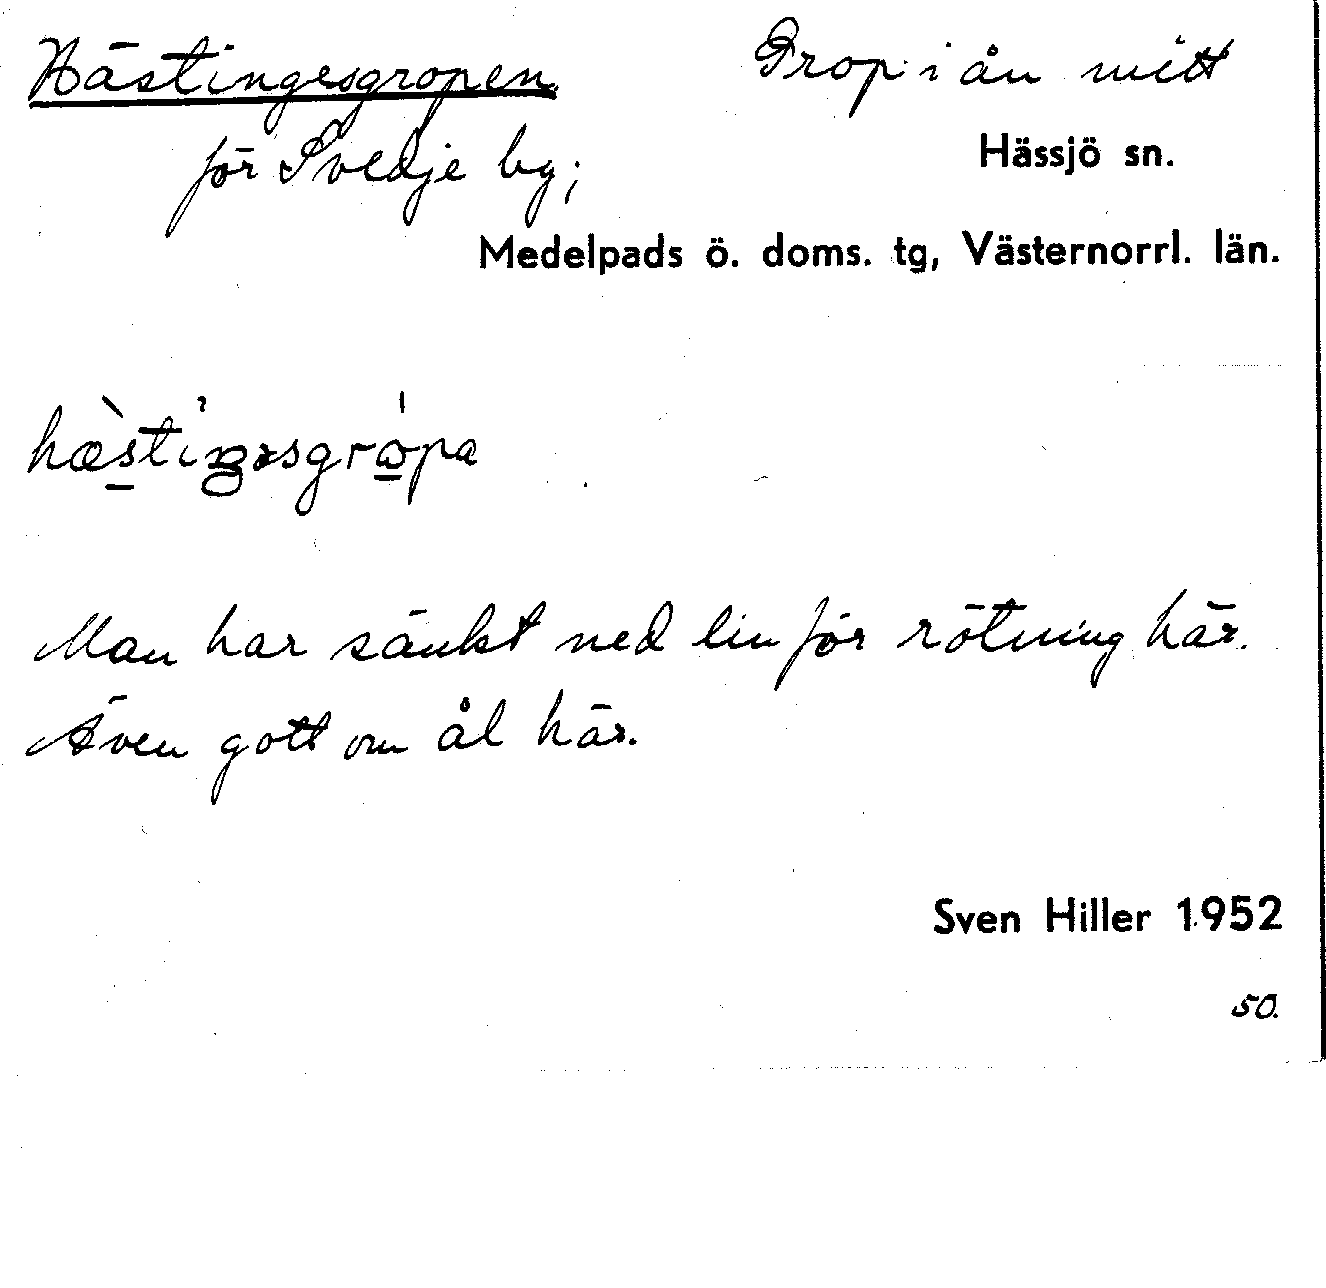 Hästingesgropen Grop i ån mitt
för Svedje by;
Hässjö sn.
Medelpads ö. doms. tg, Västernorrl. län.
hæ̀stiŋəsgrɷ́pa
Man har sänkt ned lin för rötning här.
Även gott om ål här.
Sven Hiller 1952
50.